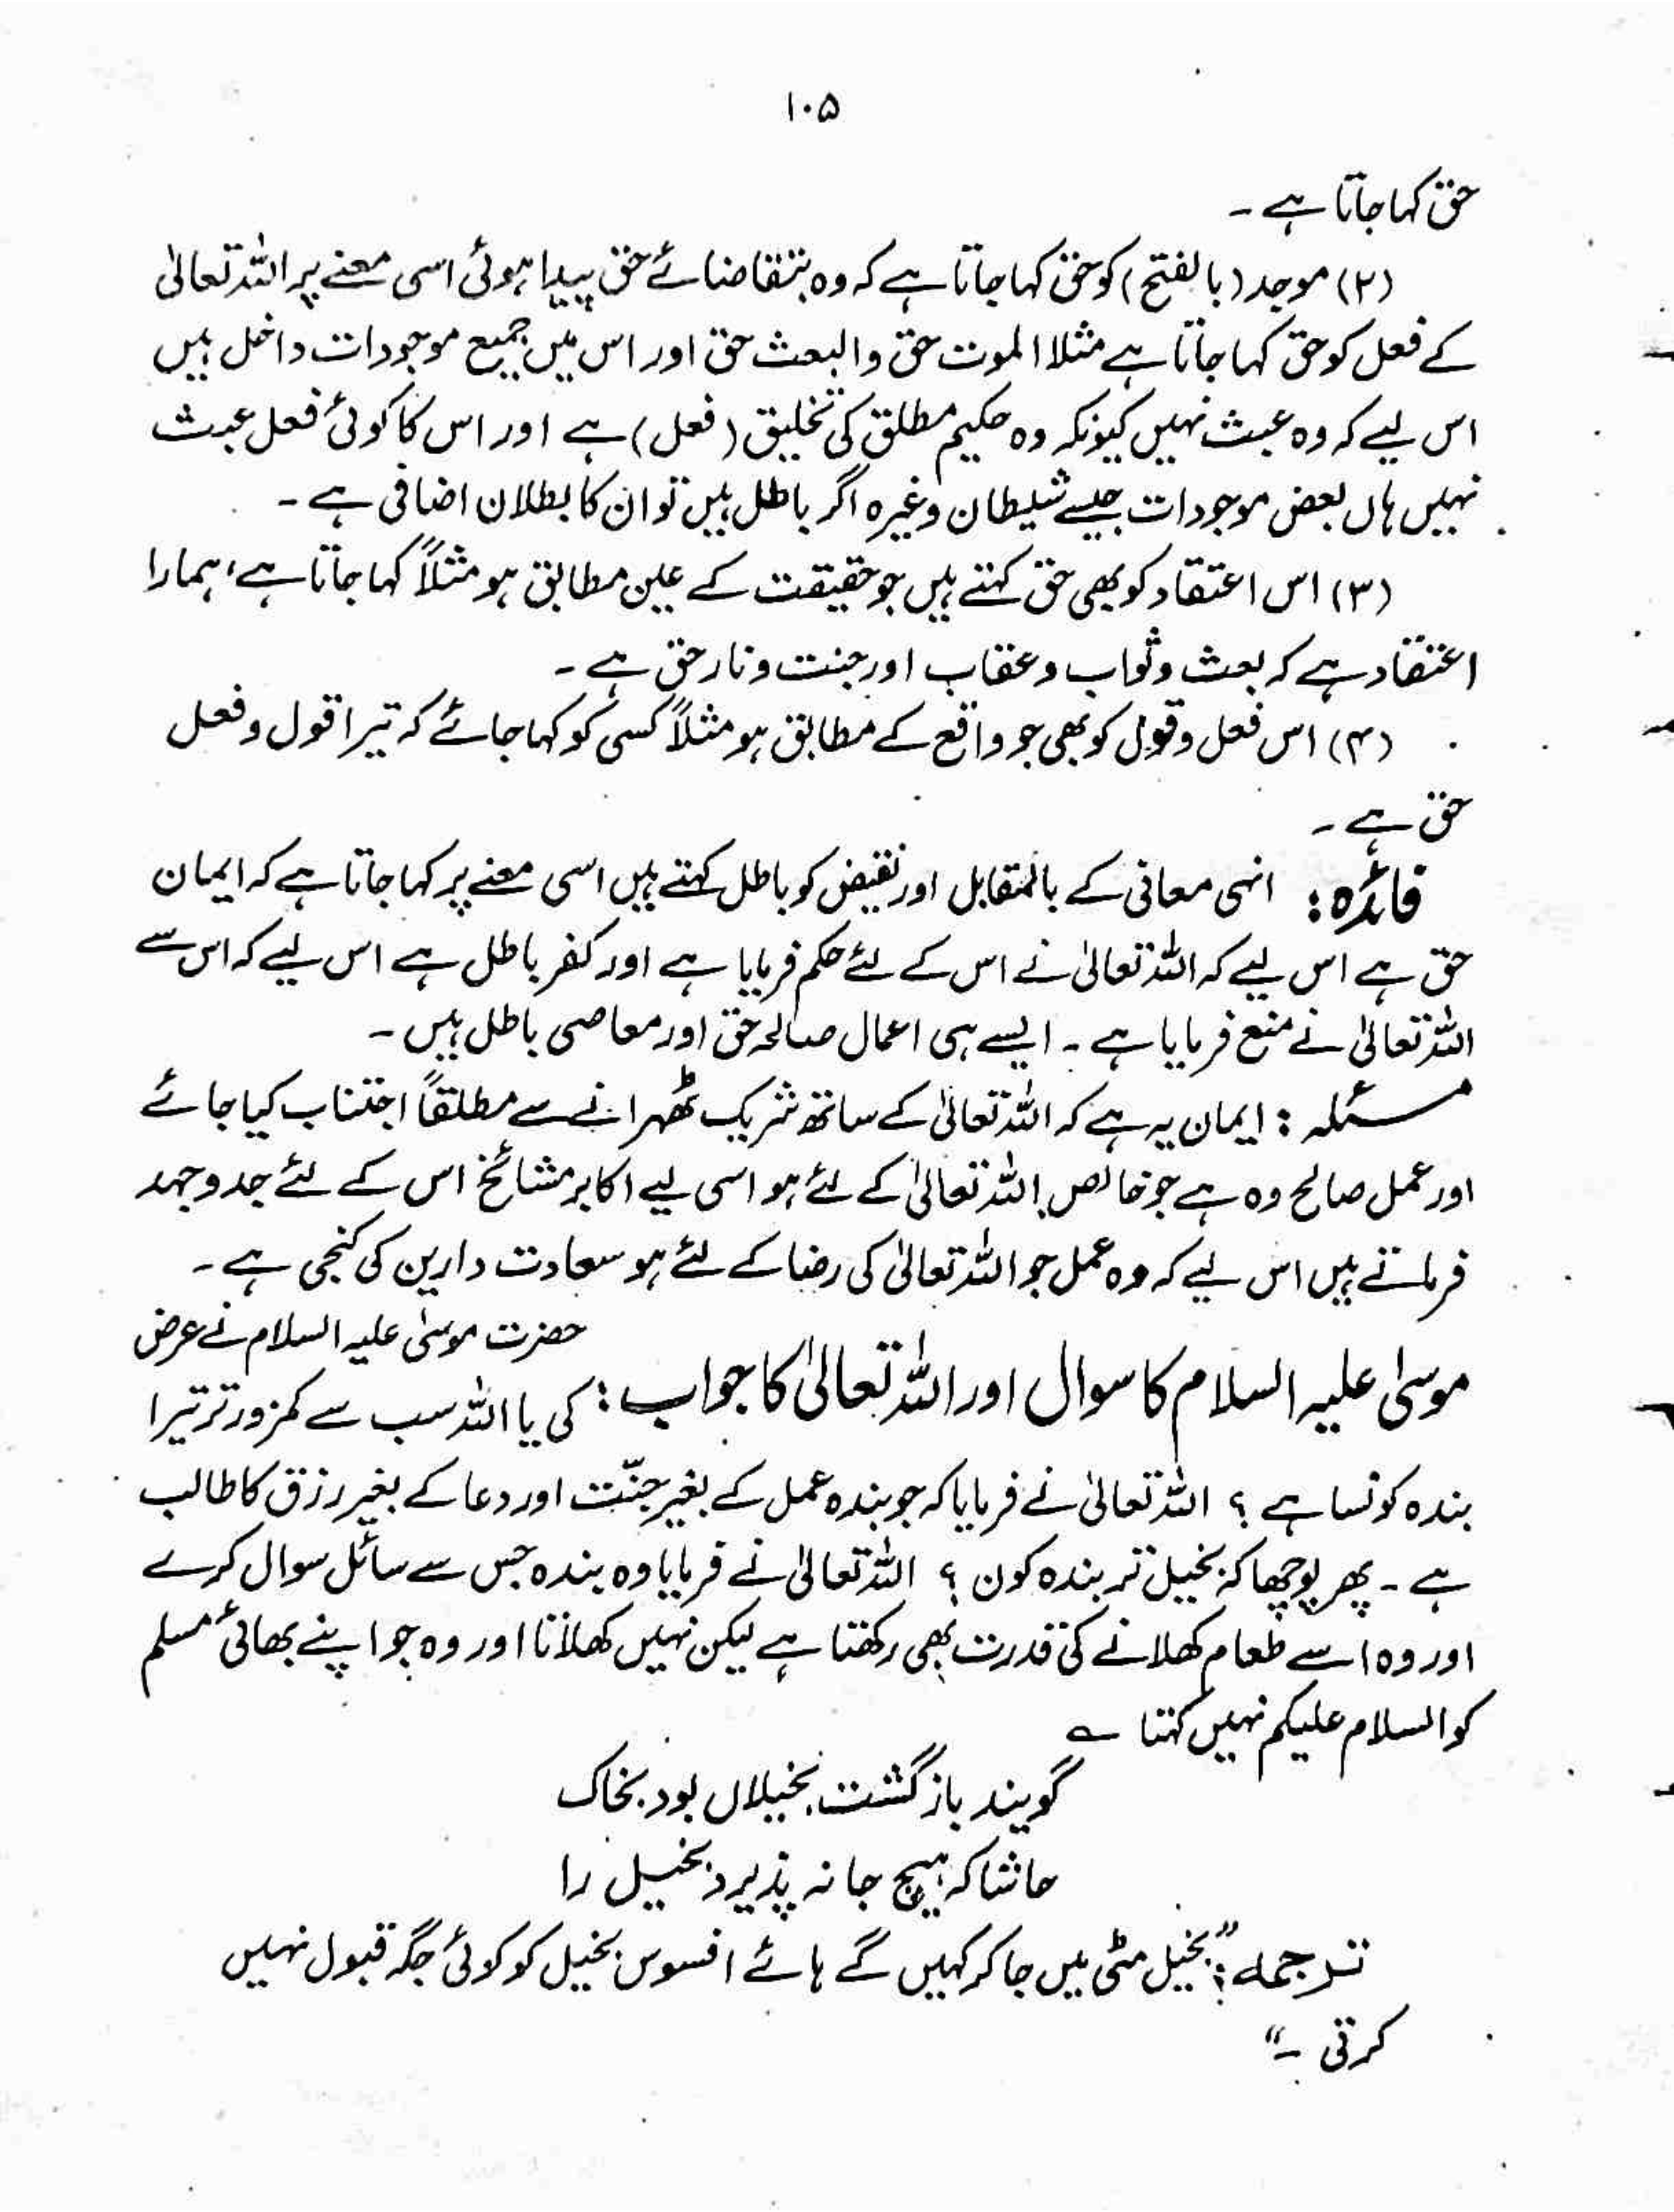 ۱۰۵
حق کہا جاتا ہے ۔
(۲) موجد (بالفتح) کو حق کہا جاتا ہے کہ وہ بتقاضائے حق پیدا ہوئی اسی معنے پر اللہ تعالیٰ
کے فعل کو حق کہا جاتا ہے مثلا الموت حق والبعث حق اور اس میں جمیع موجودات داخل ہیں
اس لیے کہ وہ عبث نہیں کیونکہ وہ حکیم مطلق کی تخلیق (فعل) ہے اور اس کا کوئی فعل عبث
نہیں ہاں بعض موجودات جیسے شیطان وغیرہ اگر باطل ہیں تو ان کا بطلان اضافی ہے ۔
(۳) اس اعتقاد کو بھی حق کہتے ہیں جو حقیقت کے عین مطابق ہو مثلاً کہا جاتا ہے، ہمارا
اعتقاد ہے کہ بعث و ثواب و عقاب اور جنت و نار حق ہے ۔
(۴) اس فعل و قول کو بھی جو واقع کے مطابق ہو مثلاً کسی کو کہا جائے کہ تیرا قول و فعل
حق ہے ۔
فائدہ : انہی معانی کے بالمقابل اور نقیض کو باطل کہتے ہیں اسی معنے پر کہا جاتا ہے کہ ایمان
حق ہے اس لیے کہ اللہ تعالیٰ نے اس کے لئے حکم فرمایا ہے اور کفر باطل ہے اس لیے کہ اس سے
اللہ تعالیٰ نے منع فرمایا ہے ۔ ایسے ہی اعمال صالحہ حق اور معاصی باطل ہیں ۔
مسئلہ : ایمان یہ ہے کہ اللہ تعالیٰ کے ساتھ شریک ٹھہرانے سے مطلقاً اجتناب کیا جائے
اور عمل صالح وہ ہے جو خالص اللہ تعالیٰ کے لئے ہو اسی لیے اکابر مشائخ اس کے لئے جدوجہد
فرماتے ہیں اس لیے کہ وہ عمل جو اللہ تعالیٰ کی رضا کے لئے ہو سعادت دارین کی کنجی ہے ۔
موسیٰ علیہ السلام کا سوال اور اللہ تعالیٰ کا جواب : حضرت موسیٰ علیہ السلام نے عرض
کی یا اللہ سب سے کمزور تر تیرا
بندہ کونسا ہے ؟ اللہ تعالیٰ نے فرمایا کہ جو بندہ عمل کے بغیر جنّت اور دعا کے بغیر رزق کا طالب
ہے ۔ پھر پوچھا کہ بخیل تر بندہ کون ؟ اللہ تعالیٰ نے فرمایا وہ بندہ جس سے سائل سوال کرے
اور وہ اسے طعام کھلانے کی قدرت بھی رکھتا ہے لیکن نہیں کھلاتا اور وہ جو اپنے بھائی مسلم
کو السلام علیکم نہیں کہتا ؎
گویند باز گشت بخیلاں بود بخاک
حاشا کہ ہیچ جا نہ پذیرد بخیل را
ترجمہ : ”بخیل مٹی میں جا کر کہیں گے ہائے افسوس بخیل کو کوئی جگہ قبول نہیں
کرتی ۔“